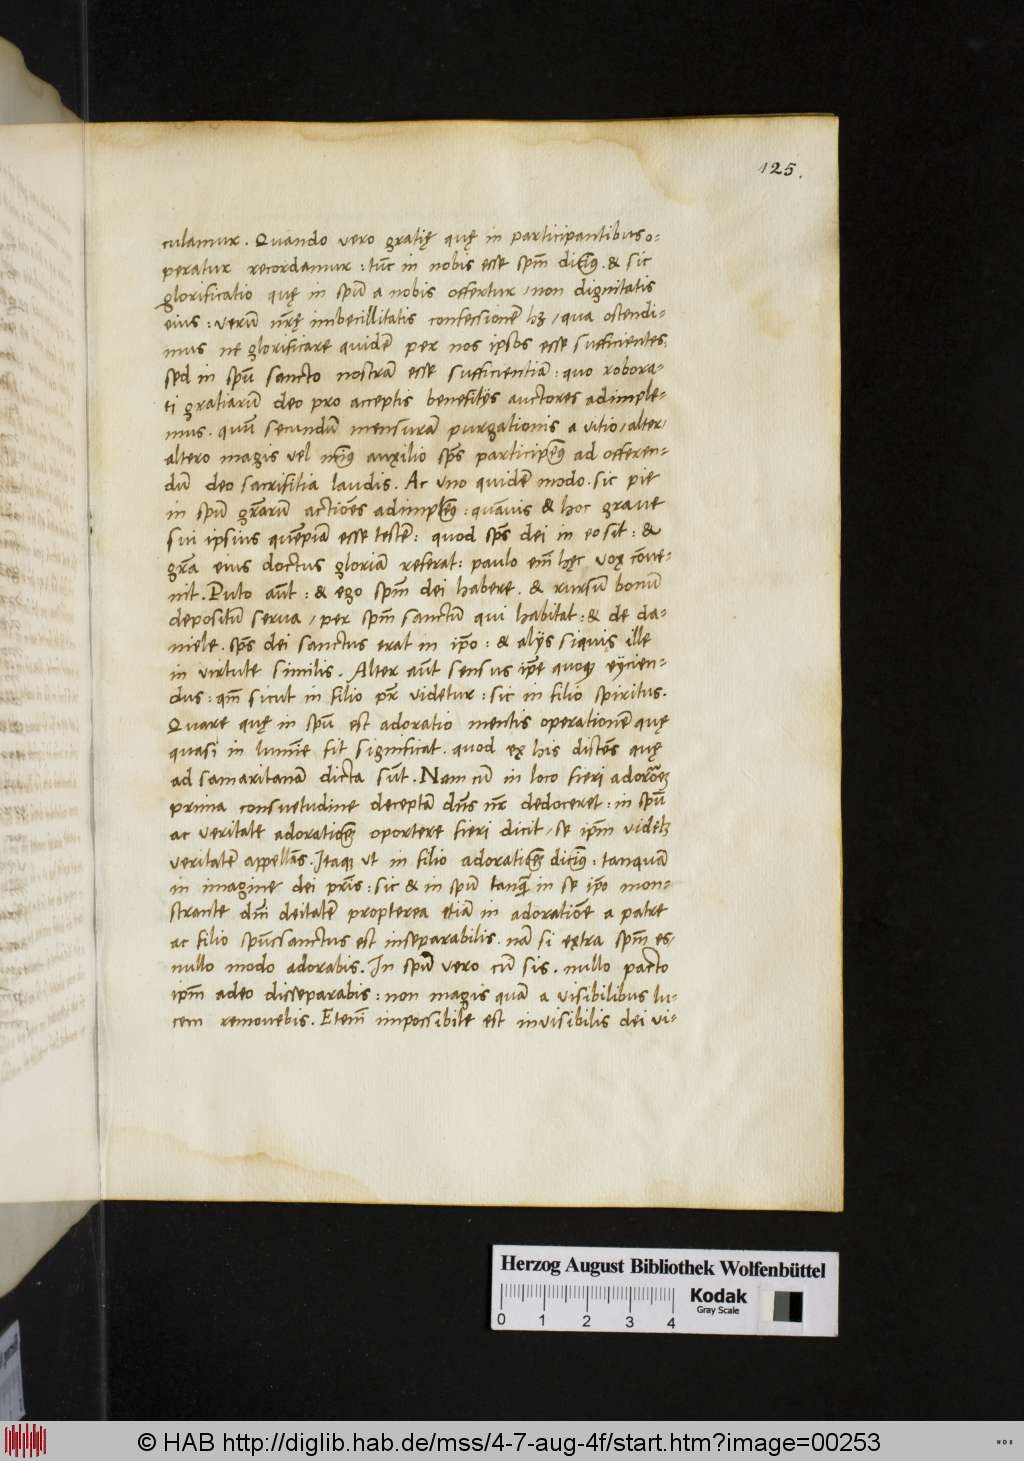 125.
culamur. Quando vero gratię quę in participantibus o-
peratur recordamur: tūc in nobis esse spm̄ dicim9. & sic
glorificatio quę in spū a nobis offertur, non dignitatis
eius: verū nr̄ę imbecillitatis confessionē hꝫ, qua ostendi-
mus ne glorificare quidē per nos ipsos esse sufficientes,
sed in spū sancto nostrā esse sufficientiā: quo robora-
ti gratiarū deo pro acceptis benefitijs auctores adimple-
mus. quū secundū mensurā purgationis a vitio, alter,
altero magis vel min9 auxilio spūs participem9 ad offeren-
dū deo sacrifitia laudis. Ac uno quidē modo. sic pie
in spū gr̄arū actiōes adimplem9: quāuis & hoc graue
sui ipsius quēpiā esse testē: quod spūs dei in eo sit: &
gr̄a eius doctus gloriā referat: paulo em̄ hęc vox cōue-
nit. Puto aūt: & ego spm̄ dei habere. & rursū bonū
depositū serua, per spm̄ sanctū qui habitat: & de da-
niele. spūs dei sanctus erat in ip̄o: & alijs siquis ille
in virtute similis. Alter aūt sensus ip̄e quoqꝫ eijcien-
dus: qm̄ sicut in filio pr̄ videtur: sic in filio spiritus.
Quare quę in spū est adoratio mentis operationē quę
quasi in lumīe fit significat. quod ex his discēs quę
ad samaritanā dicta sūt. Nam cū in loco fieri adorōeꝫ
prima consuetudine deceptā dn̄s nr̄ dedoceret: in spū
ac veritate adorationeꝫ oportere fieri dicit, se ipm̄ videlꝫ
veritatē appellās. Itaqꝫ ut in filio adorationeꝫ dicim9: tanquā
in imagine dei pr̄is: sic & in spū tanqꝫ in se ip̄o mon-
strante dn̄i deitatē propterea etiā in adoratiōe a patre
ac filio spūs sanctus est inseparabilis. nā si extra spm̄ es,
nullo modo adorabis. In spū vero cū sis. nullo pacto
ipm̄ adeo disseparabis: non magis quā a visibilibus lu-
cem remouebis. Etenī impossibile est invisibilis dei vi-
Herzog August Bibliothek Wolfenbüttel
Kodak
Gray Scale
0 1 2 3 4
© HAB http://diglib.hab.de/mss/4-7-aug-4f/start.htm?image=00253